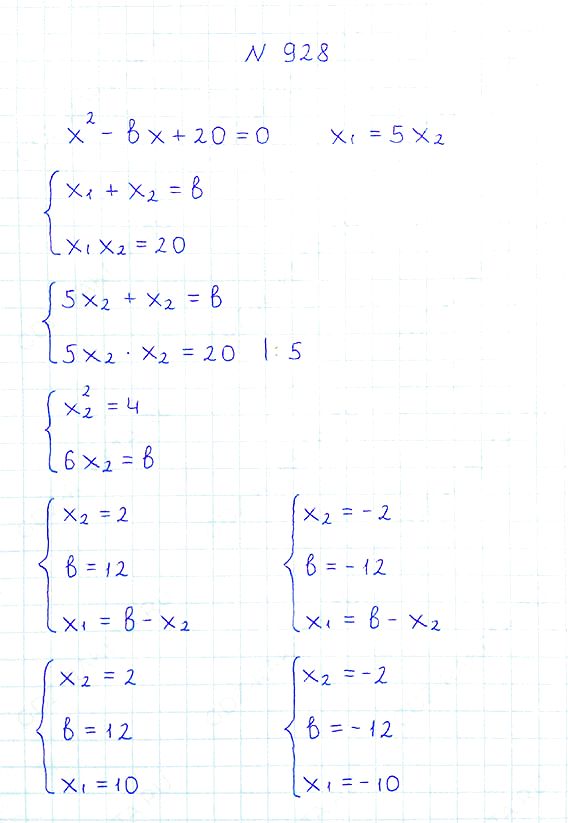 N 928
x² - bx + 20 = 0 x₁ = 5x₂
x₁ + x₂ = b
x₁x₂ = 20
5x₂ + x₂ = b
5x₂ · x₂ = 20 |: 5
x₂² = 4
6x₂ = b
x₂ = 2 x₂ = -2
b = 12 b = -12
x₁ = b - x₂ x₁ = b - x₂
x₂ = 2 x₂ = -2
b = 12 b = -12
x₁ = 10 x₁ = -10